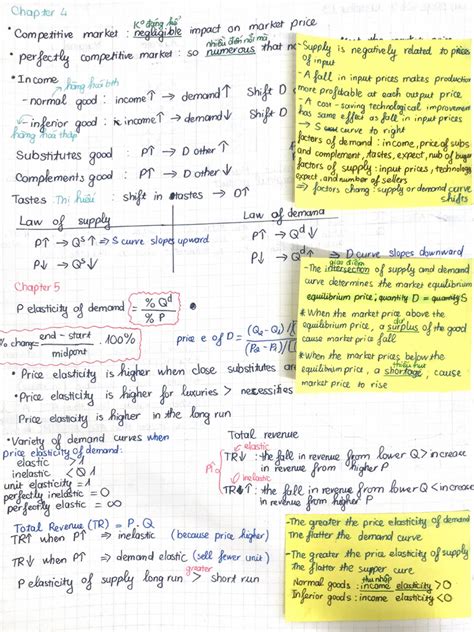 Chapter 4
K° đáng kể
• Competitive market : negligible impact on market price
nhiều đến nỗi mà
• perfectly competitive market : so numerous that
• Income
hàng hoá bth
- normal good : income↑ → demand↑ Shift D
- inferior good : income↑ → demand↓ Shift D
hàng hoá thấp
Substitutes good : P↑ → D other ↑
Complements good : P↑ → D other ↓
Tastes Thị hiếu : shift in tastes → D↑
Law of supply
P↑ → Q^s↑ ⇒ S curve slopes upward
P↓ → Q^s↓
Law of demand
P↑ → Q^d↓
P↓ → Q^d↑ ⇒ D curve slopes downward
- Supply is negatively related to prices of input
- A fall in input prices makes production
more profitable at each output price
- A cost - saving technological improvement
has same effect as fall in input prices
→ S curve to right
factors of demand : income, price of subs
and complement, tastes, expect, numb of buyer
factors of supply : input prices, technology
expect, and number of sellers
⇒ factors chang : supply or demand curve
shifts
Chapter 5
P elasticity of demand = % Q^d / % P
% change = end - start / midpont . 100%
price e of D = (Q2 - Q1) / [
(P2 - P1) / [
• Price elasticity is higher when close substitutes are
• Price elasticity is higher for luxuries > necessities
Price elasticity is higher in the long run
giao điểm
- The intersection of supply and demand
curve determines the market equilibrium
equilibrium price, quantity D = quantity S
* When the market price above the
dư
equilibrium price, a surplus of the good
cause market price fall
* When the market prices below the
thiếu hụt
equilibrium price, a shortage, cause
market price to rise
• Variety of demand curves when
price elasticity of demand :
elastic > 1
inelastic < 1
unit elasticity = 1
perfectly inelastic = 0
perfectly elastic = ∞
Total revenue
elastic
P↑ TR↓ : the fall in revenue from lower Q > increase
in revenue from higher P
inelastic
TR↑ : the fall in revenue from lower Q < increase
in revenue from higher P
Total Revenue (TR) = P . Q
TR↑ when P↑ ⇒ inelastic (because price higher)
TR↓ when P↑ ⇒ demand elastic (sell fewer unit)
greater
P elasticity of supply long run > short run
- The greater the price elasticity of demand
The flatter the demand curve
- The greater the price elasticity of supply
The flatter the supper cure
thu nhập
Normal goods : income elasticity > 0
Inferior goods : income elasticity < 0